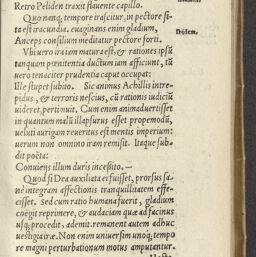 Retro Peliden traxit flauente capillo.
Quo nanq; tempore irascitur, in pectore si-
ta est iracundia. euaginans enim gladium,
Anceps consilium meditatur pectore forti.
Ibidem.
Vbi uero iraiam matura est, & rationes ipsū
tanquam pœnitentia ductum iam afficiunt, tū
uero tenaciter prudentia caput occupat:
Ille stupet subito. Sic animus Achillis intre-
pidus, & terroris nescius, cū rationis iudiciū
uideret, pertinuit. Cum enim animaduertisset
in quantum malū illapsurus esset propemodū,
ueluti aurigam reueritus est mentis imperium:
uerum non omnino iram remisit. Itaque sub-
dit poëta:
Conuiciijs illum duris incessito.—
Quod si Dea auxiliata ei fuisset, prorsus sa-
nè integram affectionis tranquillitatem effe-
cisset. Sed cum ratio humana fuerit, gladium
coegit reprimere, & audaciam quæ ad facinus
usq; procedit, ademit. remanent autem adhuc
uestigia iræ. Non enim uniuersim unoq; tempo
re magni perturbationum motus amputantur.